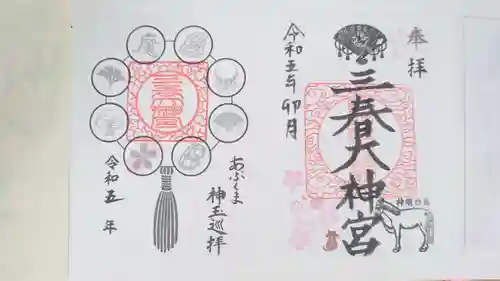 奉拝
三春大神宮
令和五年 卯月
神明
あぶくま
神玉巡拝
令和五 年